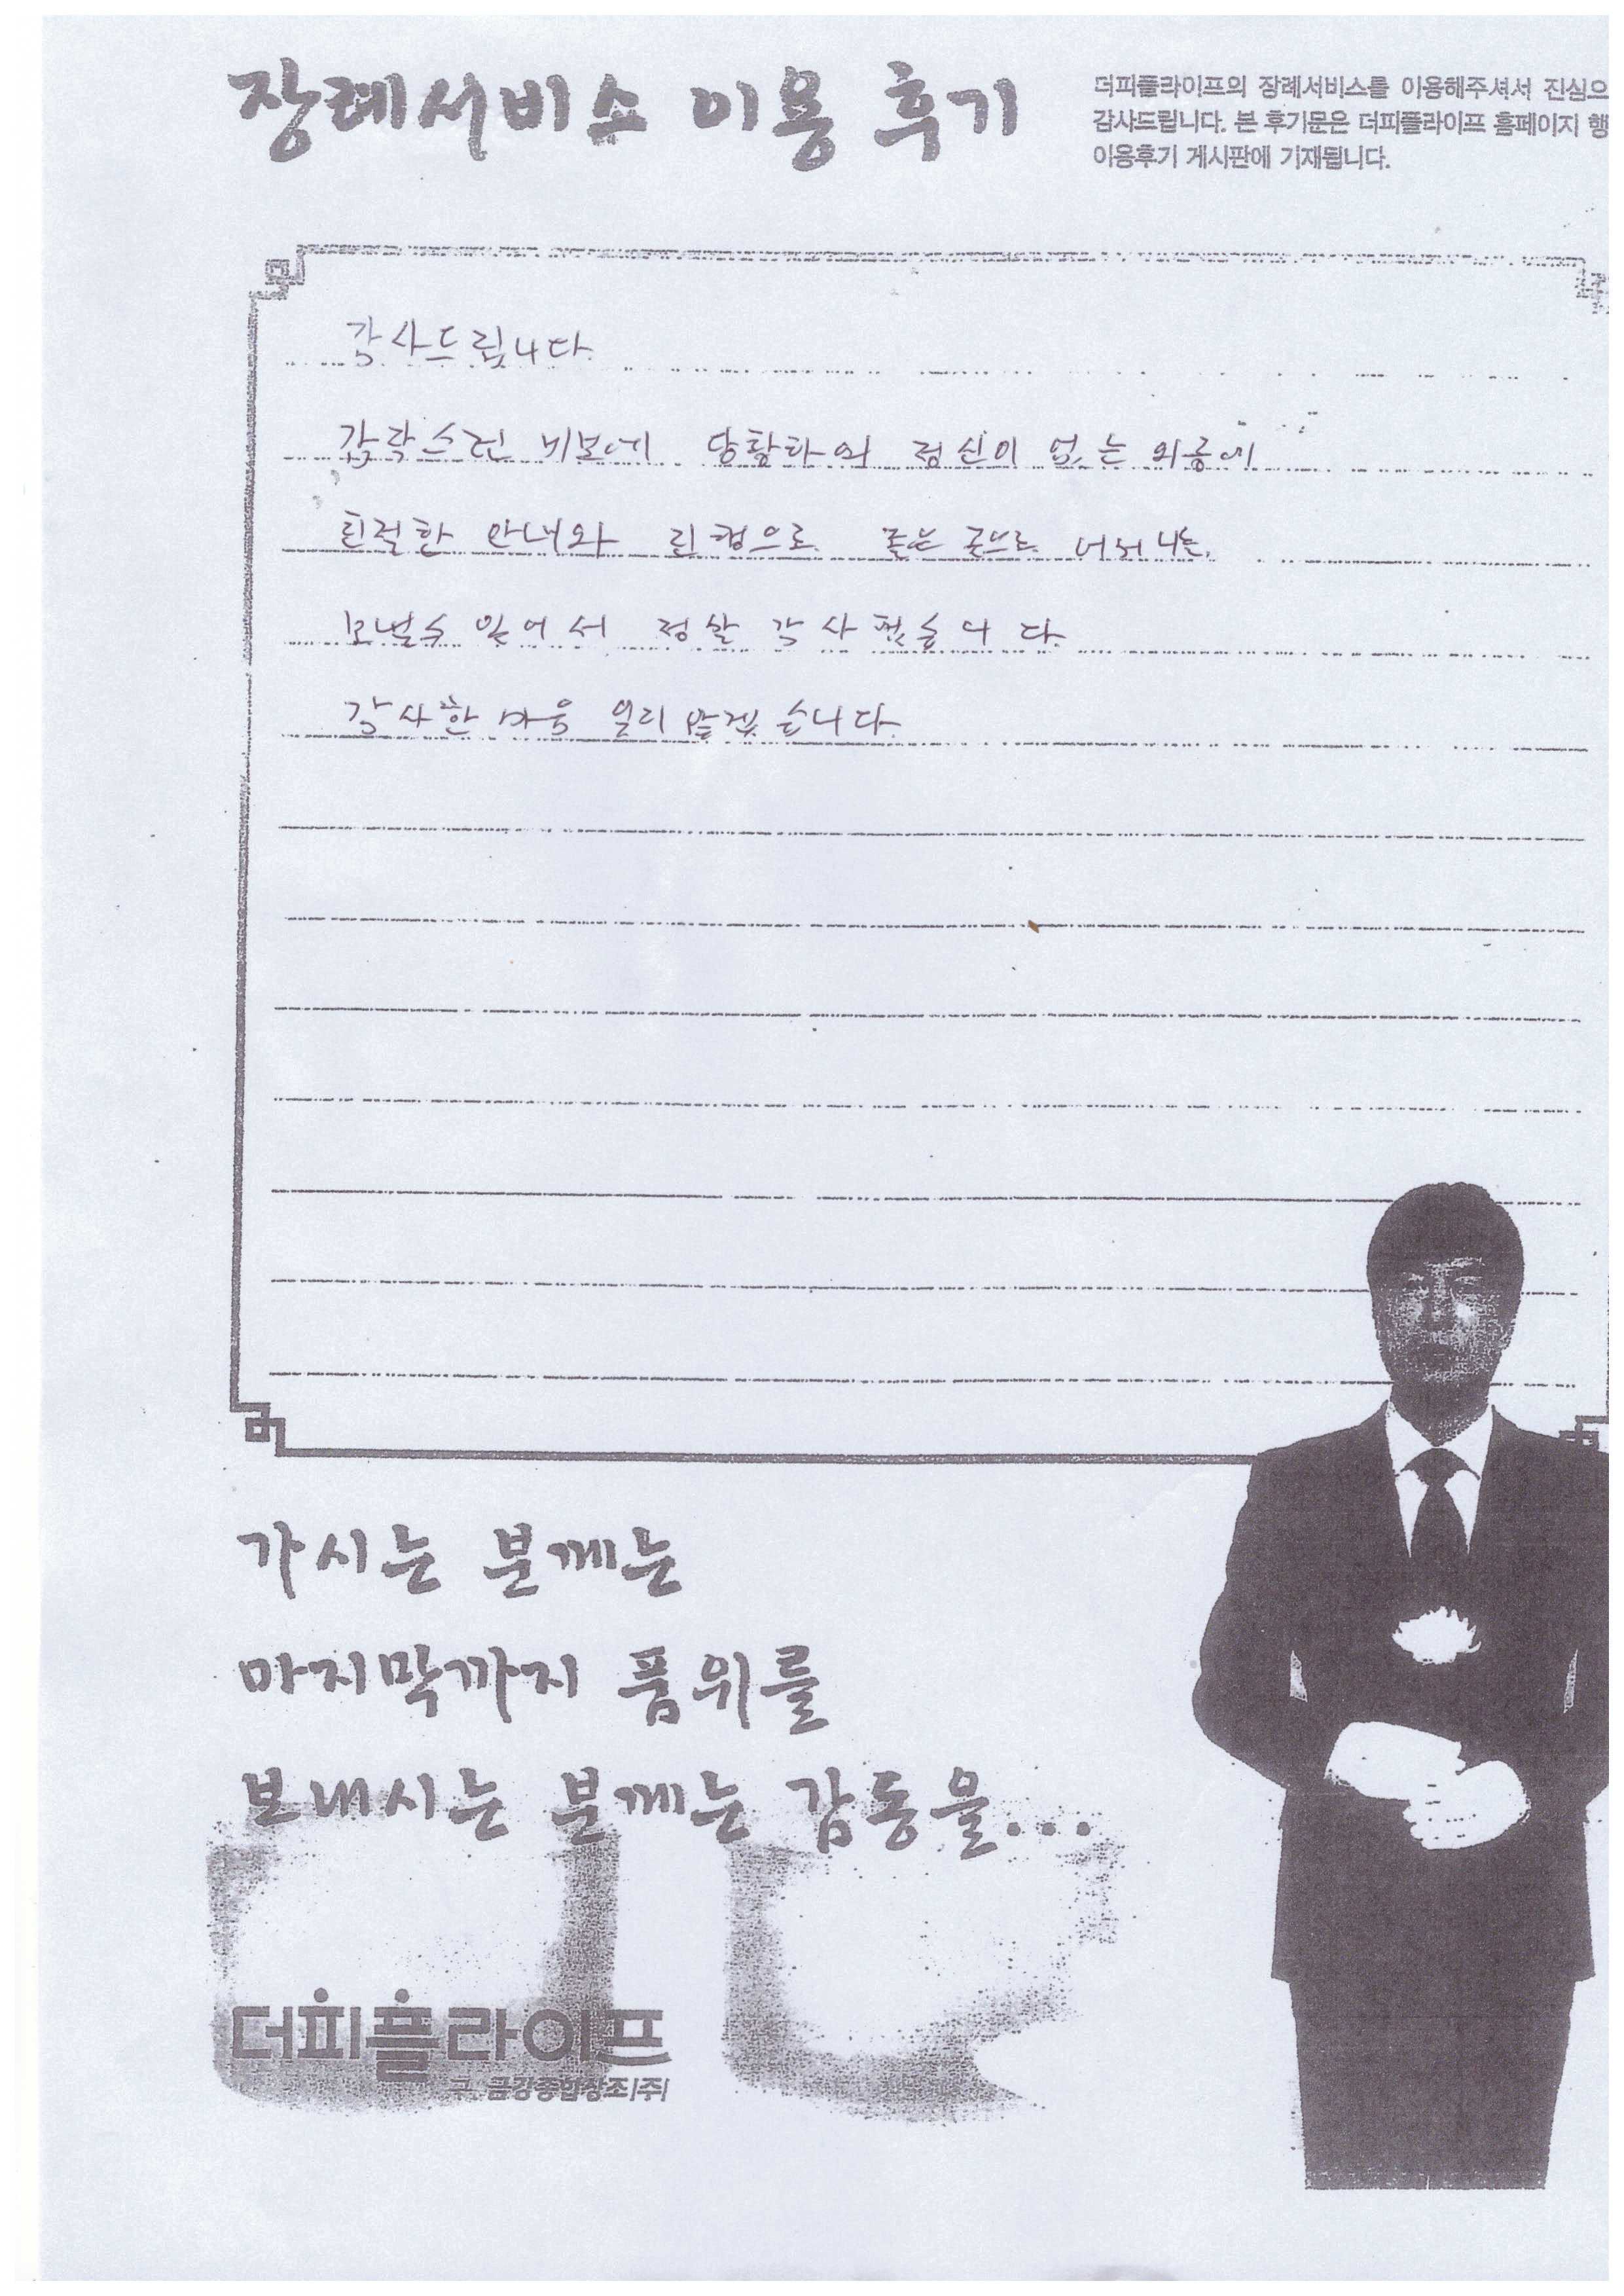 장례서비스 이용 후기
더피플라이프의 장례서비스를 이용해주셔서 진심으
감사드립니다. 본 후기문은 더피플라이프 홈페이지 행
이용후기 게시판에 기재됩니다.
감사드립니다.
갑작스런 비보에 당황하여 정신이 없는 와중에
친절한 안내와 진행으로 좋은 곳으로 어머니를
보낼수 있어서 정말 감사했습니다.
감사한 마음 잊지 않겠습니다.
가시는 분께는
마지막까지 품위를
보내시는 분께는 감동을...
더피플라이프
구. 금강종합상조(주)